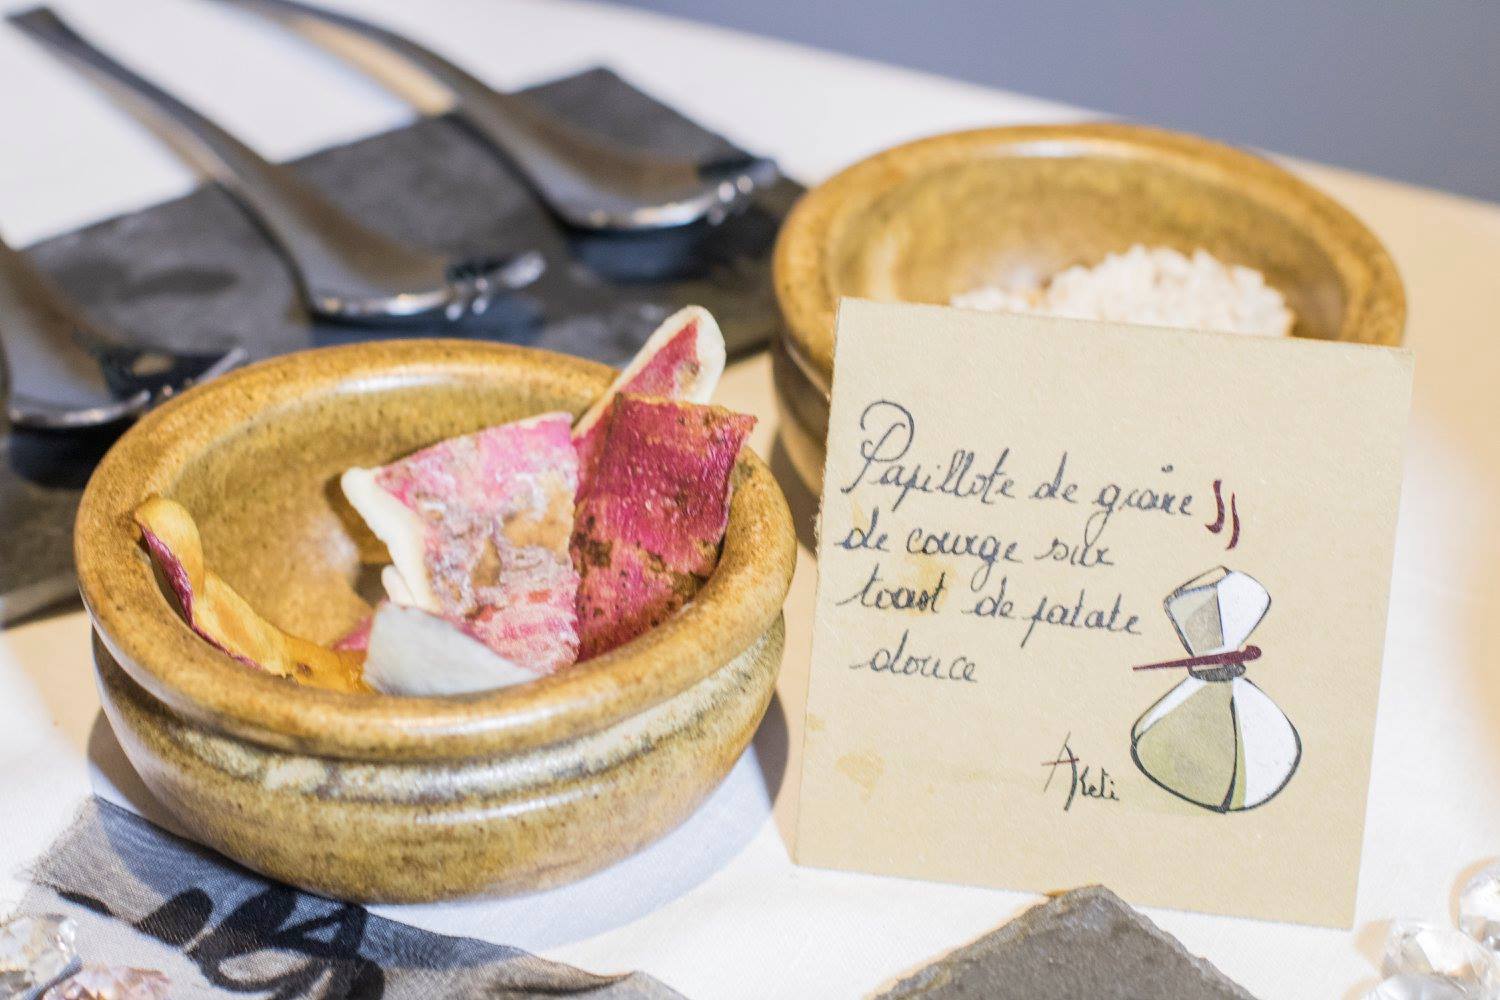 Papillote de graine
de courge sur
toast de patate
douce
AKeli